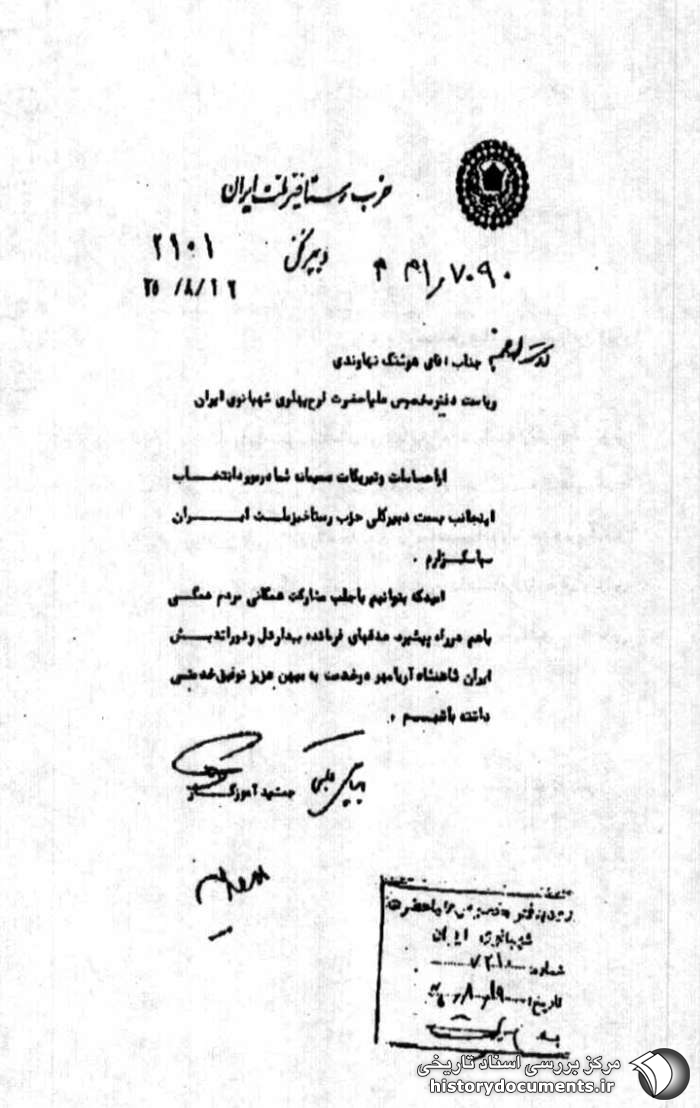 حزب رستاخیز ملت ایران
دبیرکل
۲۱۰۱
۲۵/۸/۱۶
جناب آقای هوشنگ نهاوندی
ریاست دفتر مخصوص علیاحضرت فرح پهلوی شهبانوی ایران
از احساسات و تبریکات صمیمانه شما در مورد انتخاب
اینجانب بسمت دبیرکلی حزب رستاخیز ملت ایران
سپاسگزارم .
امید که بتوانیم با جلب مشارکت همگانی مردم همگی
باهم در راه پیشبرد هدفهای فرمانده بیداردل و دوراندیش
ایران شاهنشاه آریامهر در خدمت به میهن عزیز توفیق خدمتی
داشته باشیم .
جمشید آموزگار
دفتر مخصوص علیاحضرت
شهبانوی ایران
شماره:
تاریخ:
مرکز بررسی اسناد تاریخی
historydocuments.ir